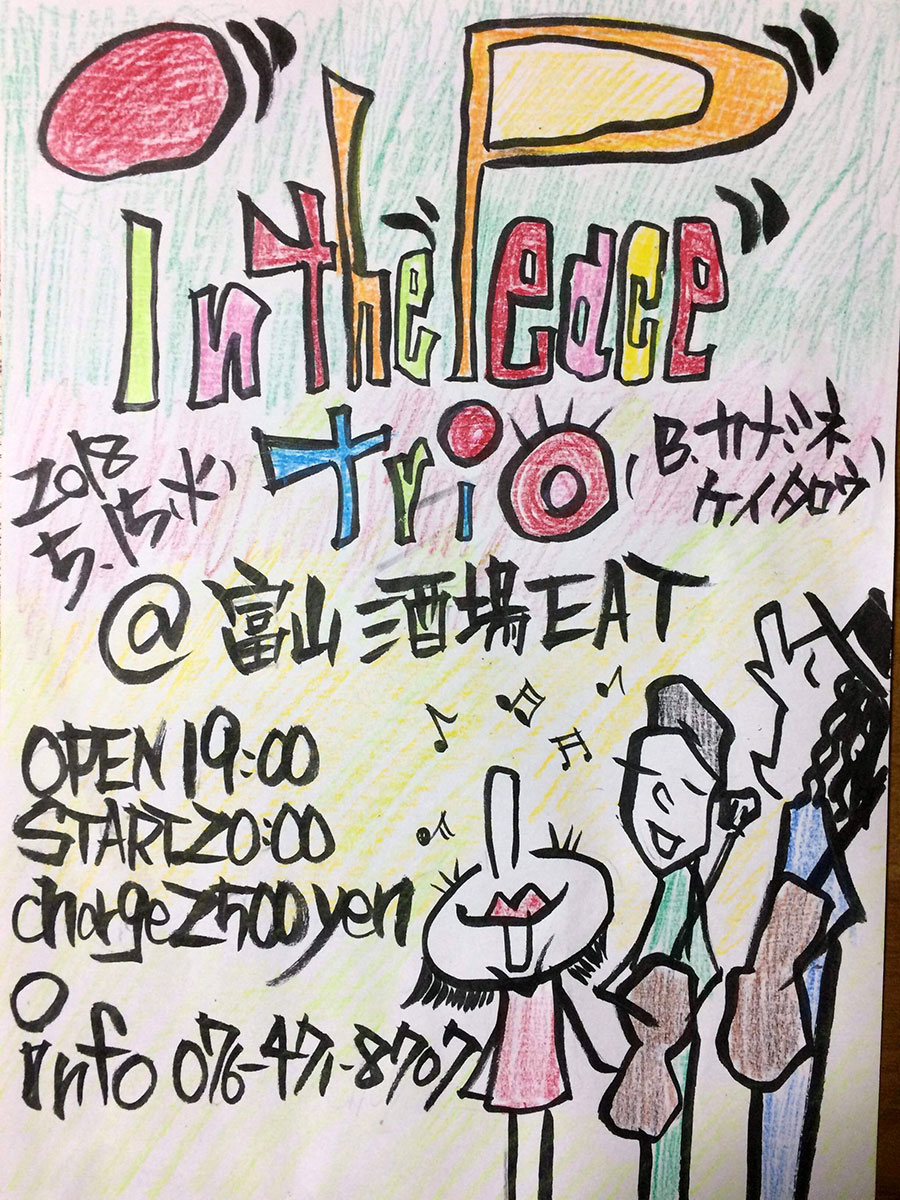 In the Peace
trio
2018
5.15(火)
(B.カナミネ
ケイタロウ)
@富山 酒場EAT
OPEN 19:00
START 20:00
charge 2500yen
info 076-471-8707